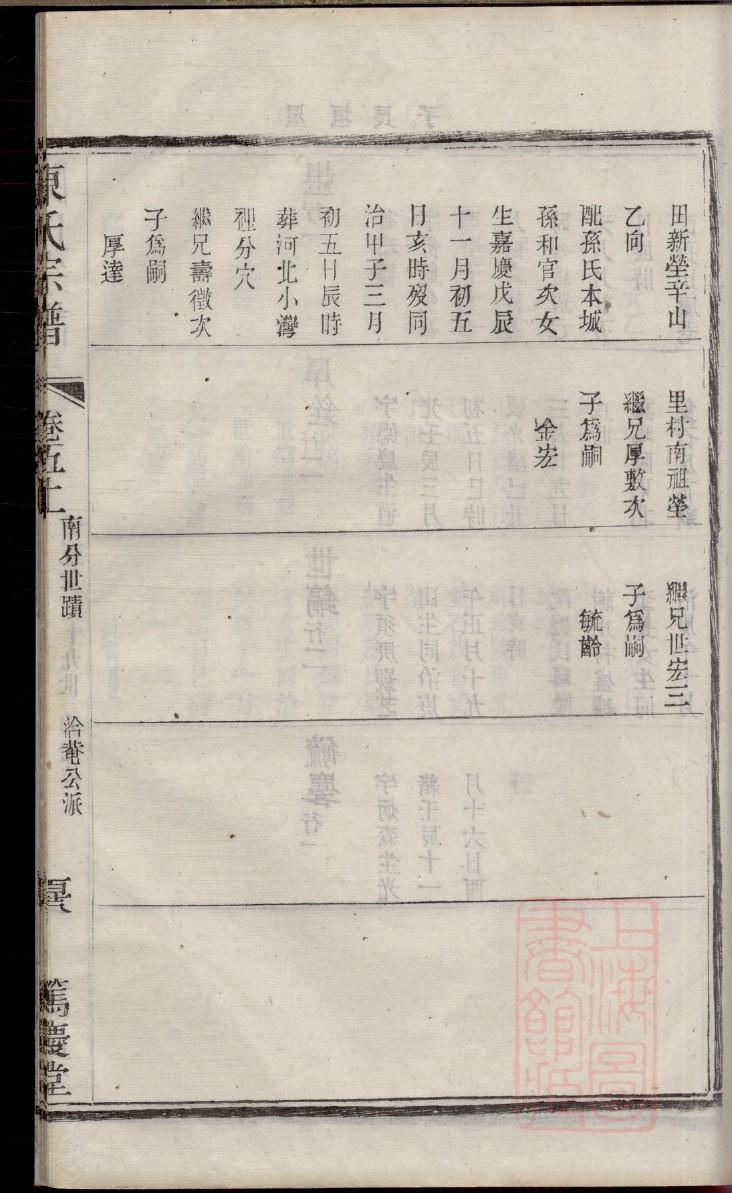 田新塋辛山
乙向
配孫氏本城
孫和官次女
生嘉慶戊辰
十一月初五
日亥時歿同
治甲子三月
初五日辰時
葬河北小灣
裡分穴
繼兄壽徵次
子爲嗣
厚達
里村南祖塋
繼兄厚敷次
子爲嗣
金宏
繼兄世宏三
子爲嗣
毓齡
陳氏宗譜
卷五上
南分世蹟
十九世
洽菴公派
篤慶堂
上海圖書館藏